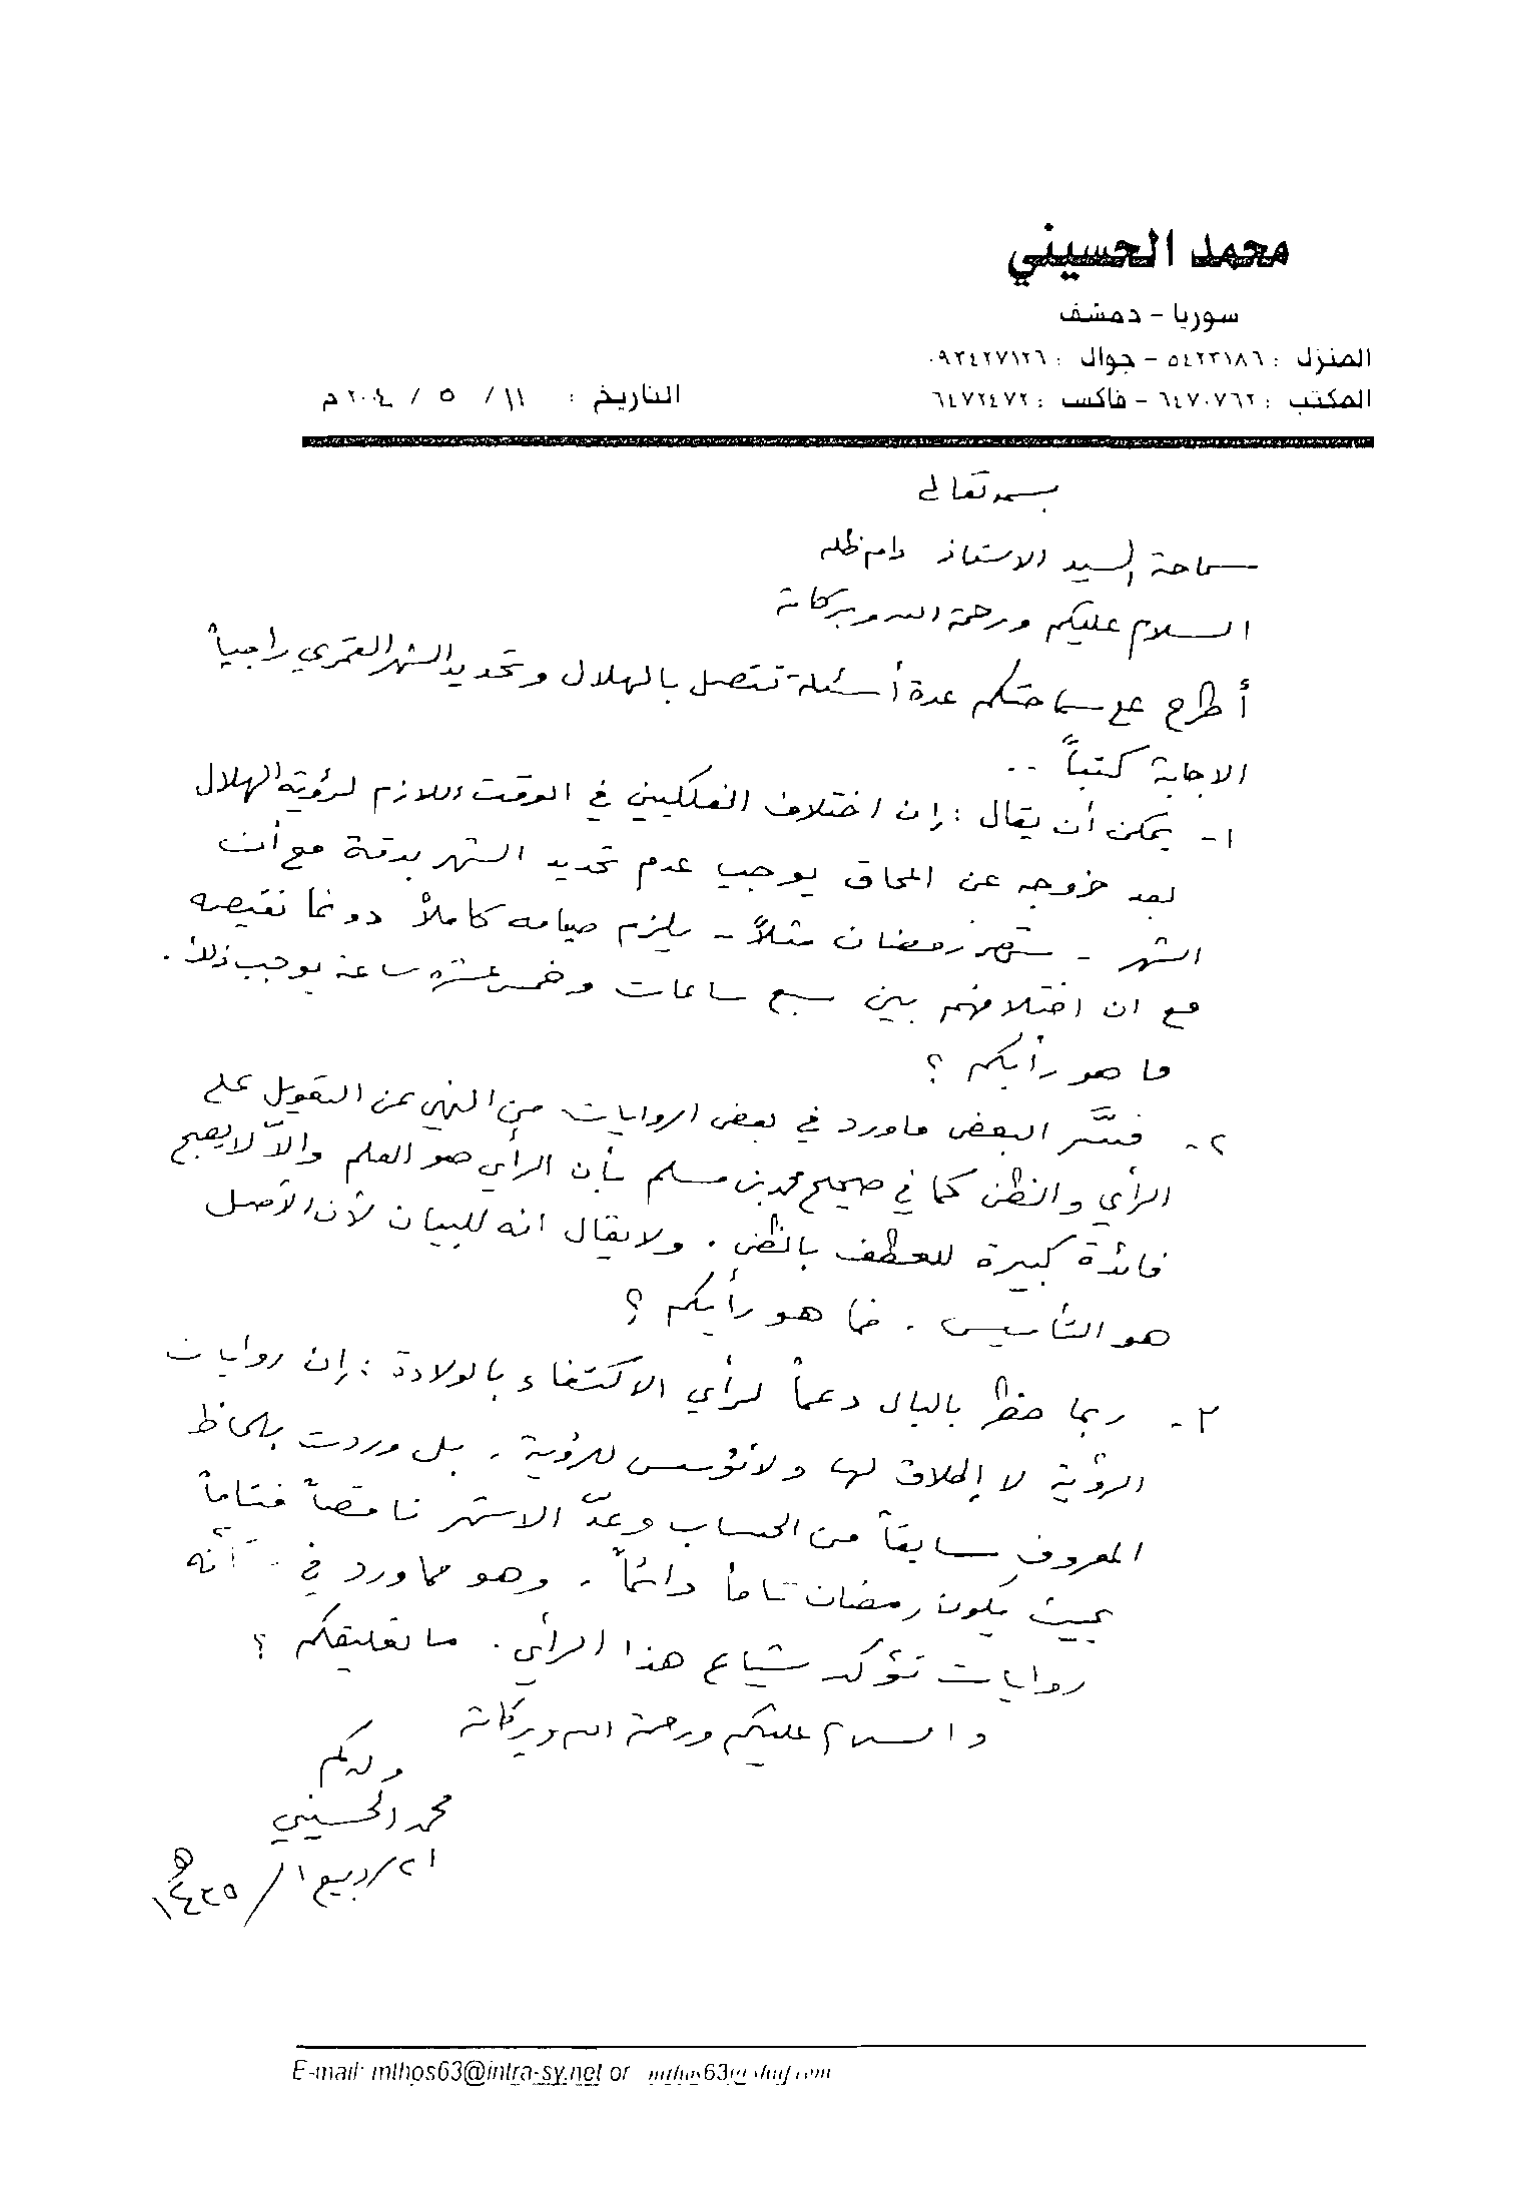 محمد الحسيني
سوريا - دمشق
المنزل : ٥٤٢٣١٨٦ - جوال : ٠٩٢٤٢٧١٢٦
المكتب : ٦٤٧٠٧٦٢ - فاكس : ٦٤٧٢٤٧٢
التاريخ : ١١ / ٥ / ٢٠٠٤م
بسمه تعالى
سماحة السيد الاستاذ دام ظله
السلام عليكم ورحمة الله وبركاته
أطرح على سماحتكم عدة أسئلة تتصل بالهلال وتحديد الشهر القمري راجياً
الاجابة كتباً ..
١- يمكن أن يقال : إن اختلاف الفلكيين في الوقت اللازم لرؤية الهلال
بعد خروجه عن المحاق يوجب عدم تحديد الشهر بدقة مع أن
الشهر - شهر رمضان مثلاً - يلزم صيامه كاملاً دونما نقيصه
مع ان اختلافهم بين سبع ساعات وخمس عشرة ساعة يوجب ذلك .
ما هو رأيكم ؟
٢- فسَّر البعض ماورد في بعض الروايات من النهي عن التعويل على
الرأي والظن كما في صحيح محمد بن مسلم بأن الرأي هو العلم والاّ لا يصح
فائدة كبيرة للعطف بالظن . ولا يقال انه للبيان لأن الأصل
هو التأسيس . فما هو رأيكم ؟
٣- ربما خطر بالبال دعماً لرأي الاكتفاء بالولادة : إن روايات
الرؤية لا إطلاق لها ولا تؤسس للرؤية . بل وردت بلحاظ
المعروف سابقاً من الحساب وعدّ الاشهر ناقصاً فتاماً
بحيث يكون رمضان تاماً دائماً . وهو مما ورد في أنه
روايات تؤكد شياع هذا الرأي . ما تعليقكم ؟
والسلام عليكم ورحمة الله وبركاته
ولدكم
محمد الحسيني
٢١/ربيع ١/١٤٢٥هـ
E-mail: mthos63@intra-sy.net or